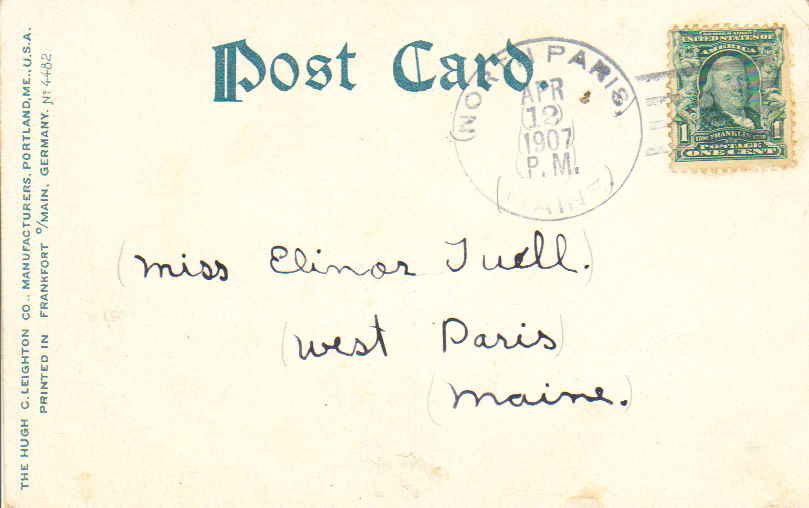 Post Card.
NORTH PARIS,
APR
12
1907
P.M.
MAINE
SERIES 1902
UNITED STATES OF
AMERICA
1 1
FRANKLIN
POSTAGE
ONE CENT
Miss Elinor Tuell.
West Paris
Maine.
THE HUGH C. LEIGHTON CO., MANUFACTURERS, PORTLAND, ME., U.S.A.
PRINTED IN FRANKFORT o/MAIN, GERMANY. No 4482